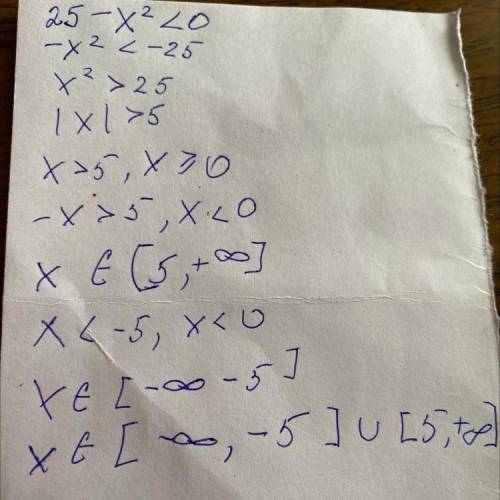 25 - x² < 0
-x² < -25
x² > 25
|x| > 5
x > 5, x ⩾ 0
-x > 5, x < 0
x ∈ [5, +∞]
x < -5, x < 0
x ∈ [-∞ -5]
x ∈ [-∞, -5] ∪ [5, +∞]